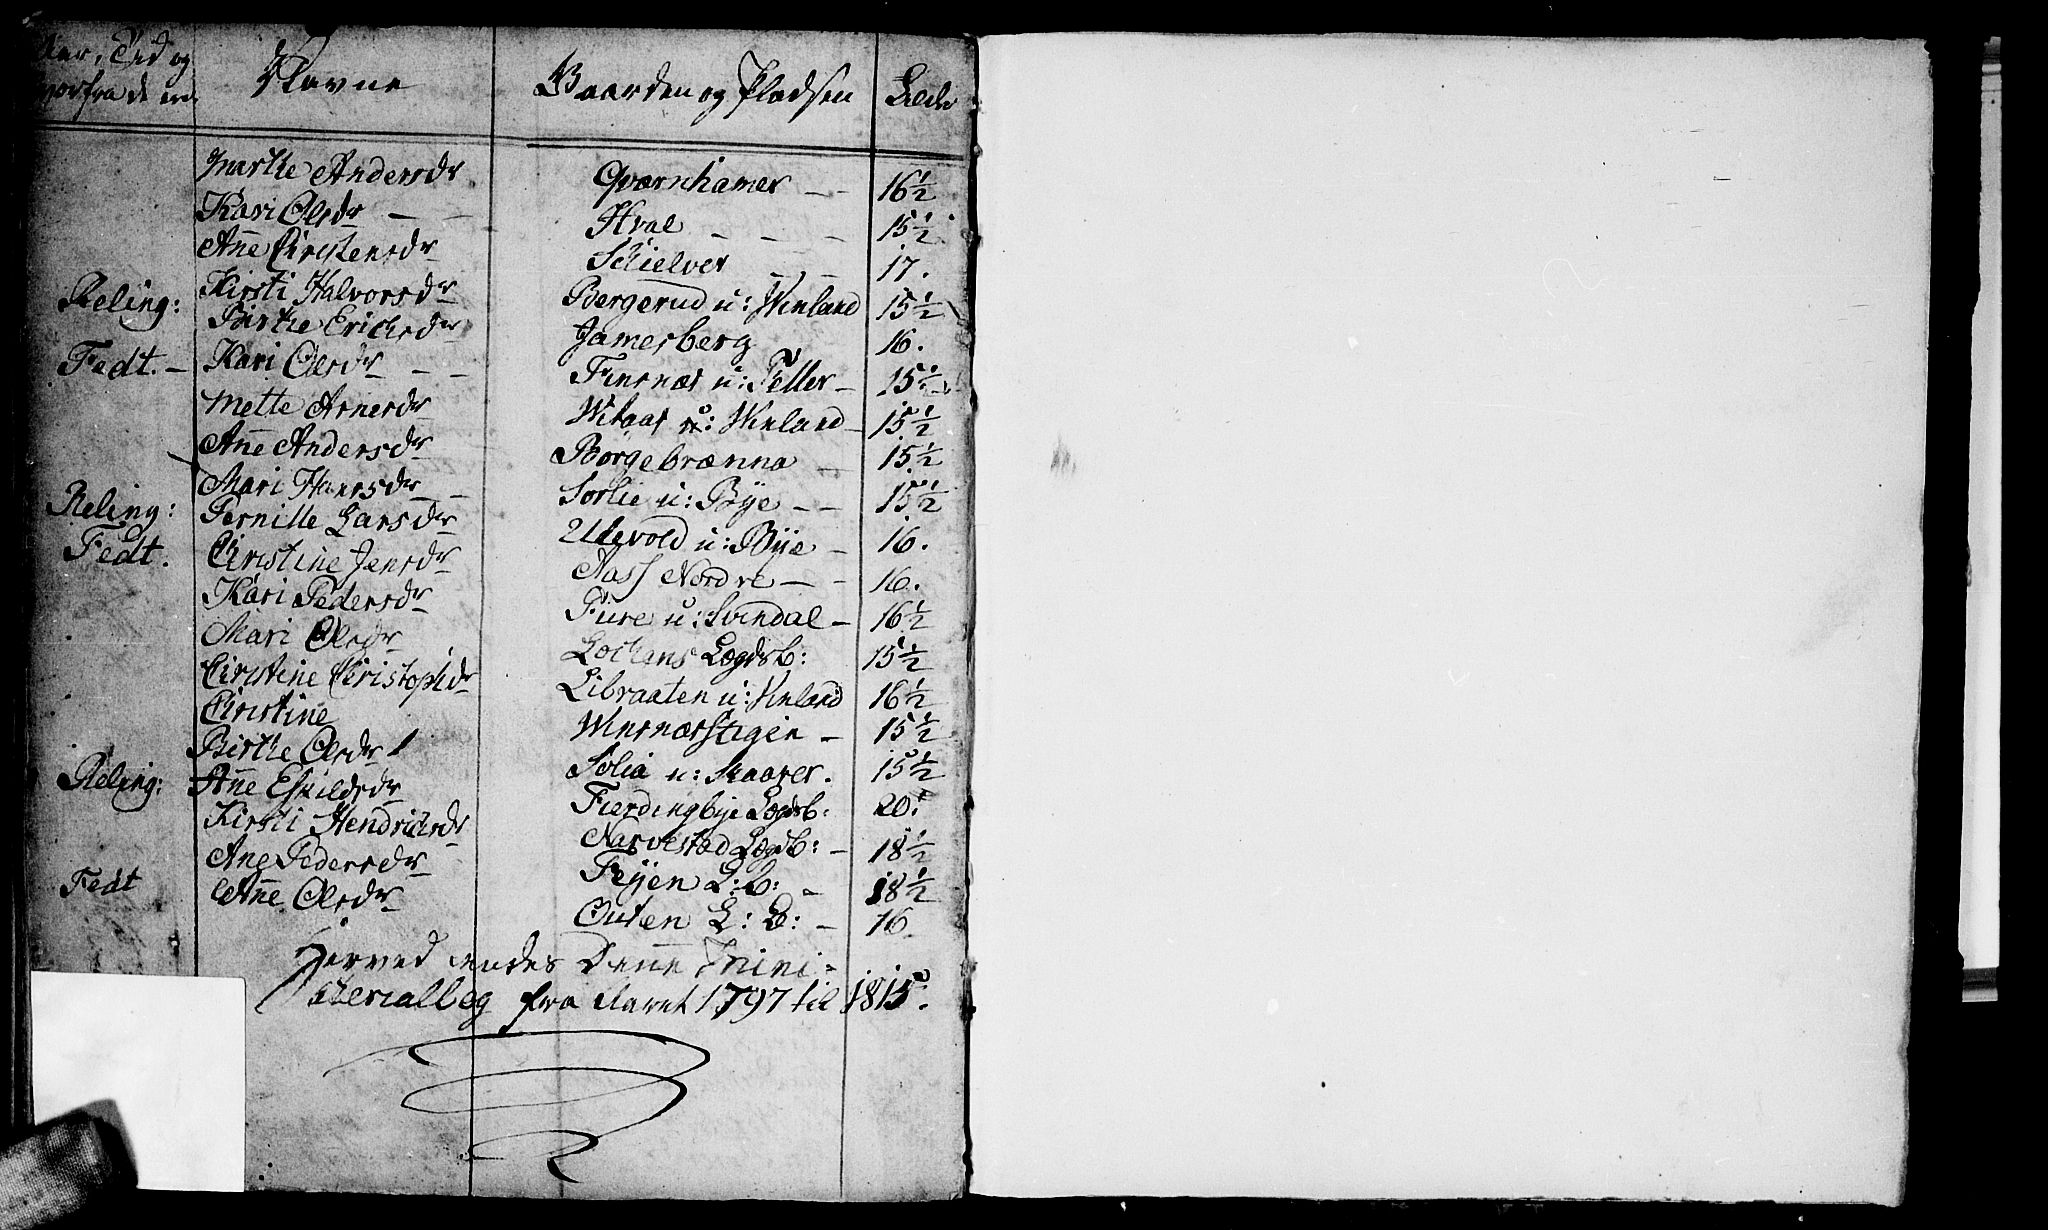 Aar, Tid og hvorfra de ere | Navne | Gaarden og Pladsen | Alder
Marthe Andersdr | Qværnhamer | 16½
Kari Olsdr | Hval | 15½
Añe Christensdr | Schielver | 17.
Reling: Kirsti Halvorsdr | Bergerud u: Winland | 15½
Birthe Erichsdr | Jamerberg | 16.
Fedt. Kari Olsdr | Finsnæs u: Teller | 15½
Mette Arnesdr | u: Winland | 15½
Añe Andersdr | Borgebrænna | 15½
Mari Hansdr | Sorlie u: Bye | 15½
Reling: Pernille Larsdr | Ulvevold u: Bye | 16.
Fedt. Christine Jensdr | Aass Nordre | 16.
Kari Pedersdr | Fure u: Svendal | 16½
Mari Olsdr | Lochens Lægdsb: | 15½
Christine Christophdr | Libraaten u: Vinland | 16½
Christine | Winsnærstigen | 15½
Birthe Olsdr | Solia u: Skaarer. | 15½
Reling: Añe Eskildsdr | Fierdingbye Lægdsb: | 20.
Kirsti Hendrichsdr | Narvestad Lægdsb: | 18½
Ane Pedersdr | Feyen L: B: | 18½
Fedt Añe Olsdr | Outen L: B: | 16
Herved endes Deñe Mini-
sterialbog fra Aaret 1797 til 1815.